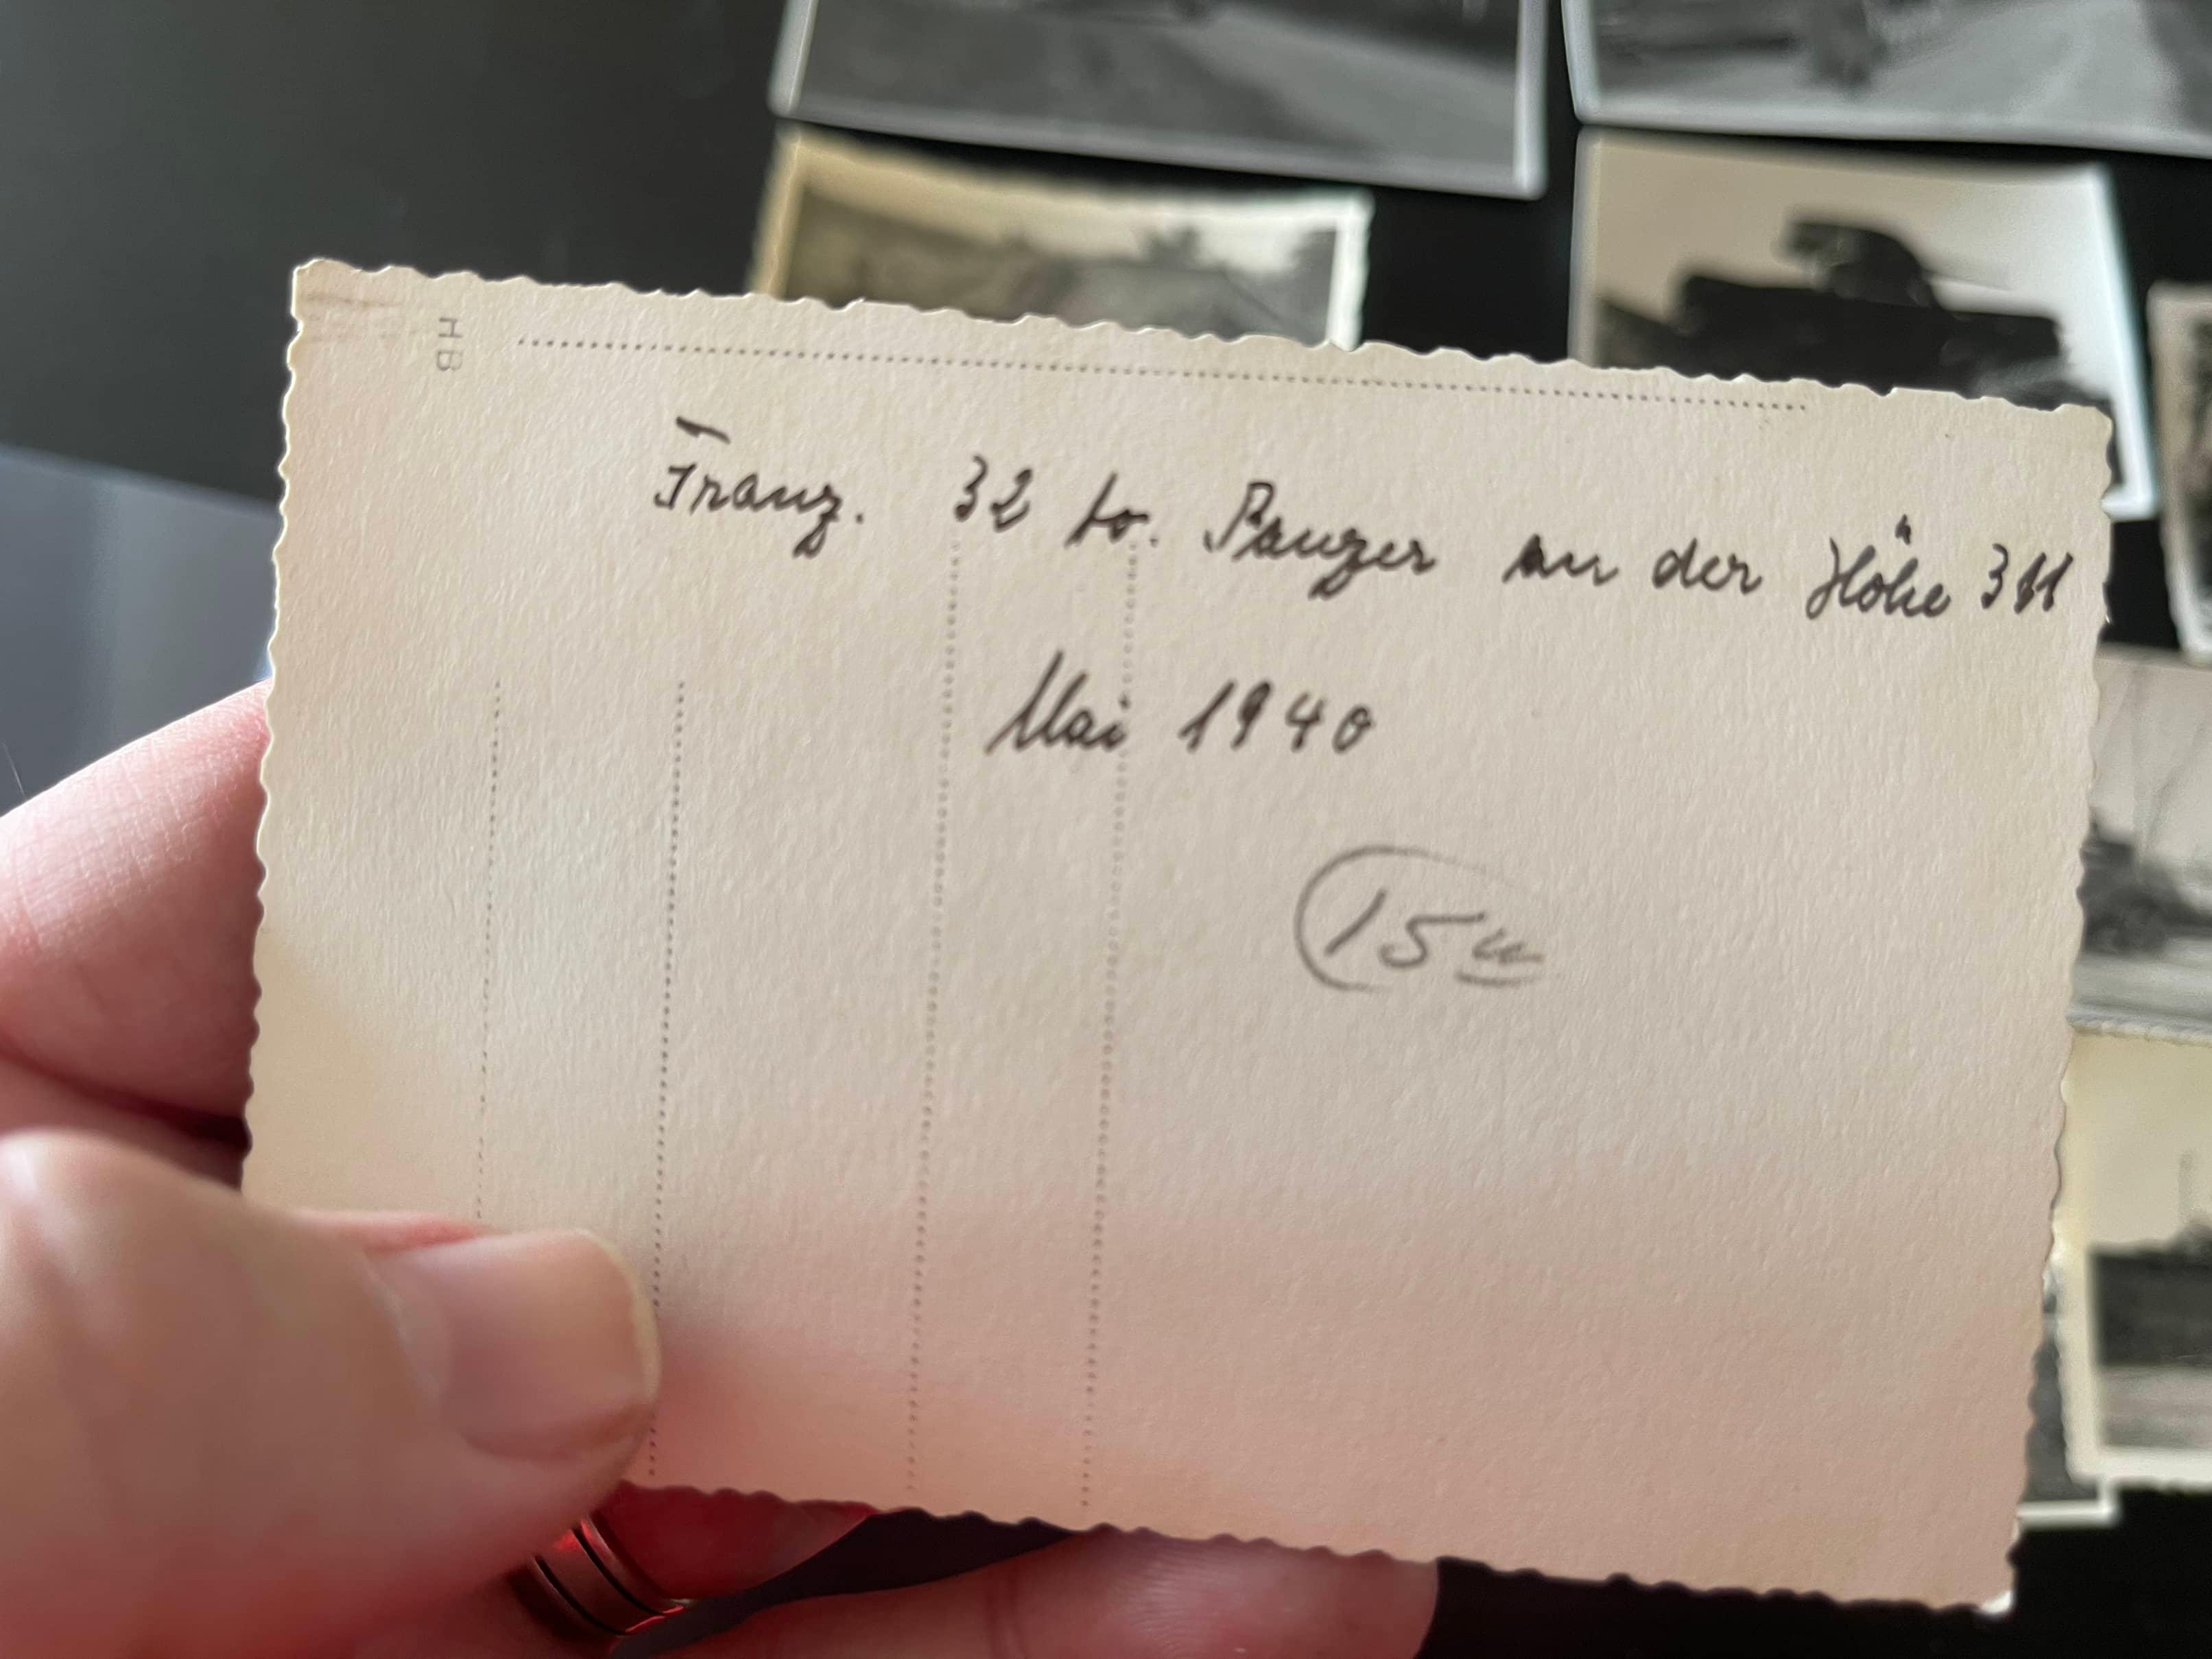 HB
Franz. 32 to. Panzer an der Höhe 311
Mai 1940
15